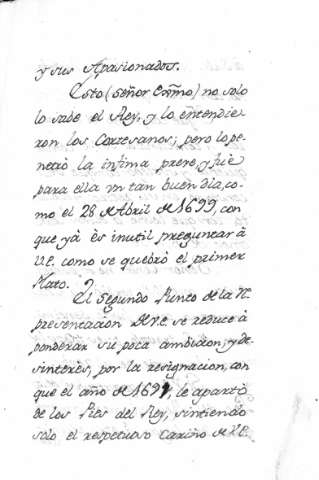 y sus Apasionados.
Esto (Señor Exm̃o) no solo
lo sabe el Rey, y lo entendie
ron los Cortesanos; pero lo pe-
netrò la infima preve, y fue
para ella un tan buen dia, co-
mo el 28 de Abril de 1699, con
que yà ès inutil preguntar à
V.E. como se quebrò el primer
Plato.
El Segundo Punto de la Re
presentacion de V.E. se reduce à
ponderar su poca ambicion; y de-
sinterès, por la resignacion, con
que el año de 1691, le apartò
de los Pies del Rey, sintiendo
solo el respetuoso Cariño de V.E.